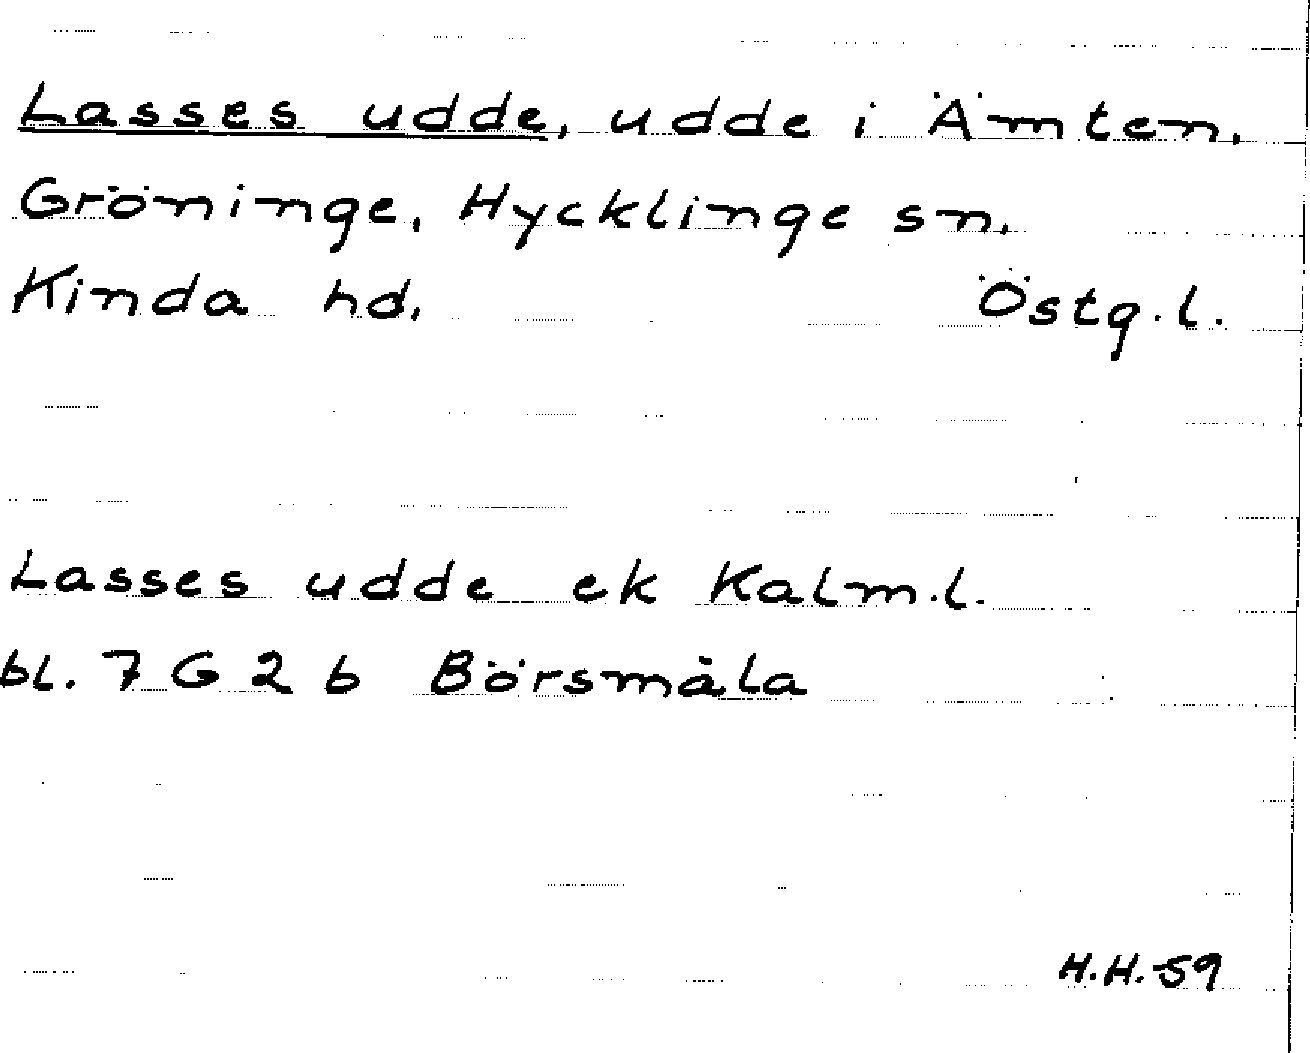 Lasses udde, udde i Ämten,
Gröninge, Hycklinge sn.
Kinda hd. Östg.l.
Lasses udde ek Kalm.l.
bl. 7 G 2 b Börsmåla
H.H.59